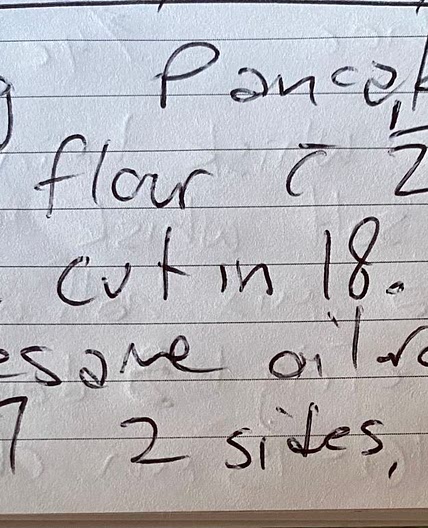 Panca
flour c̄ 1/2
cut in 18.
esame oil
2 sides,